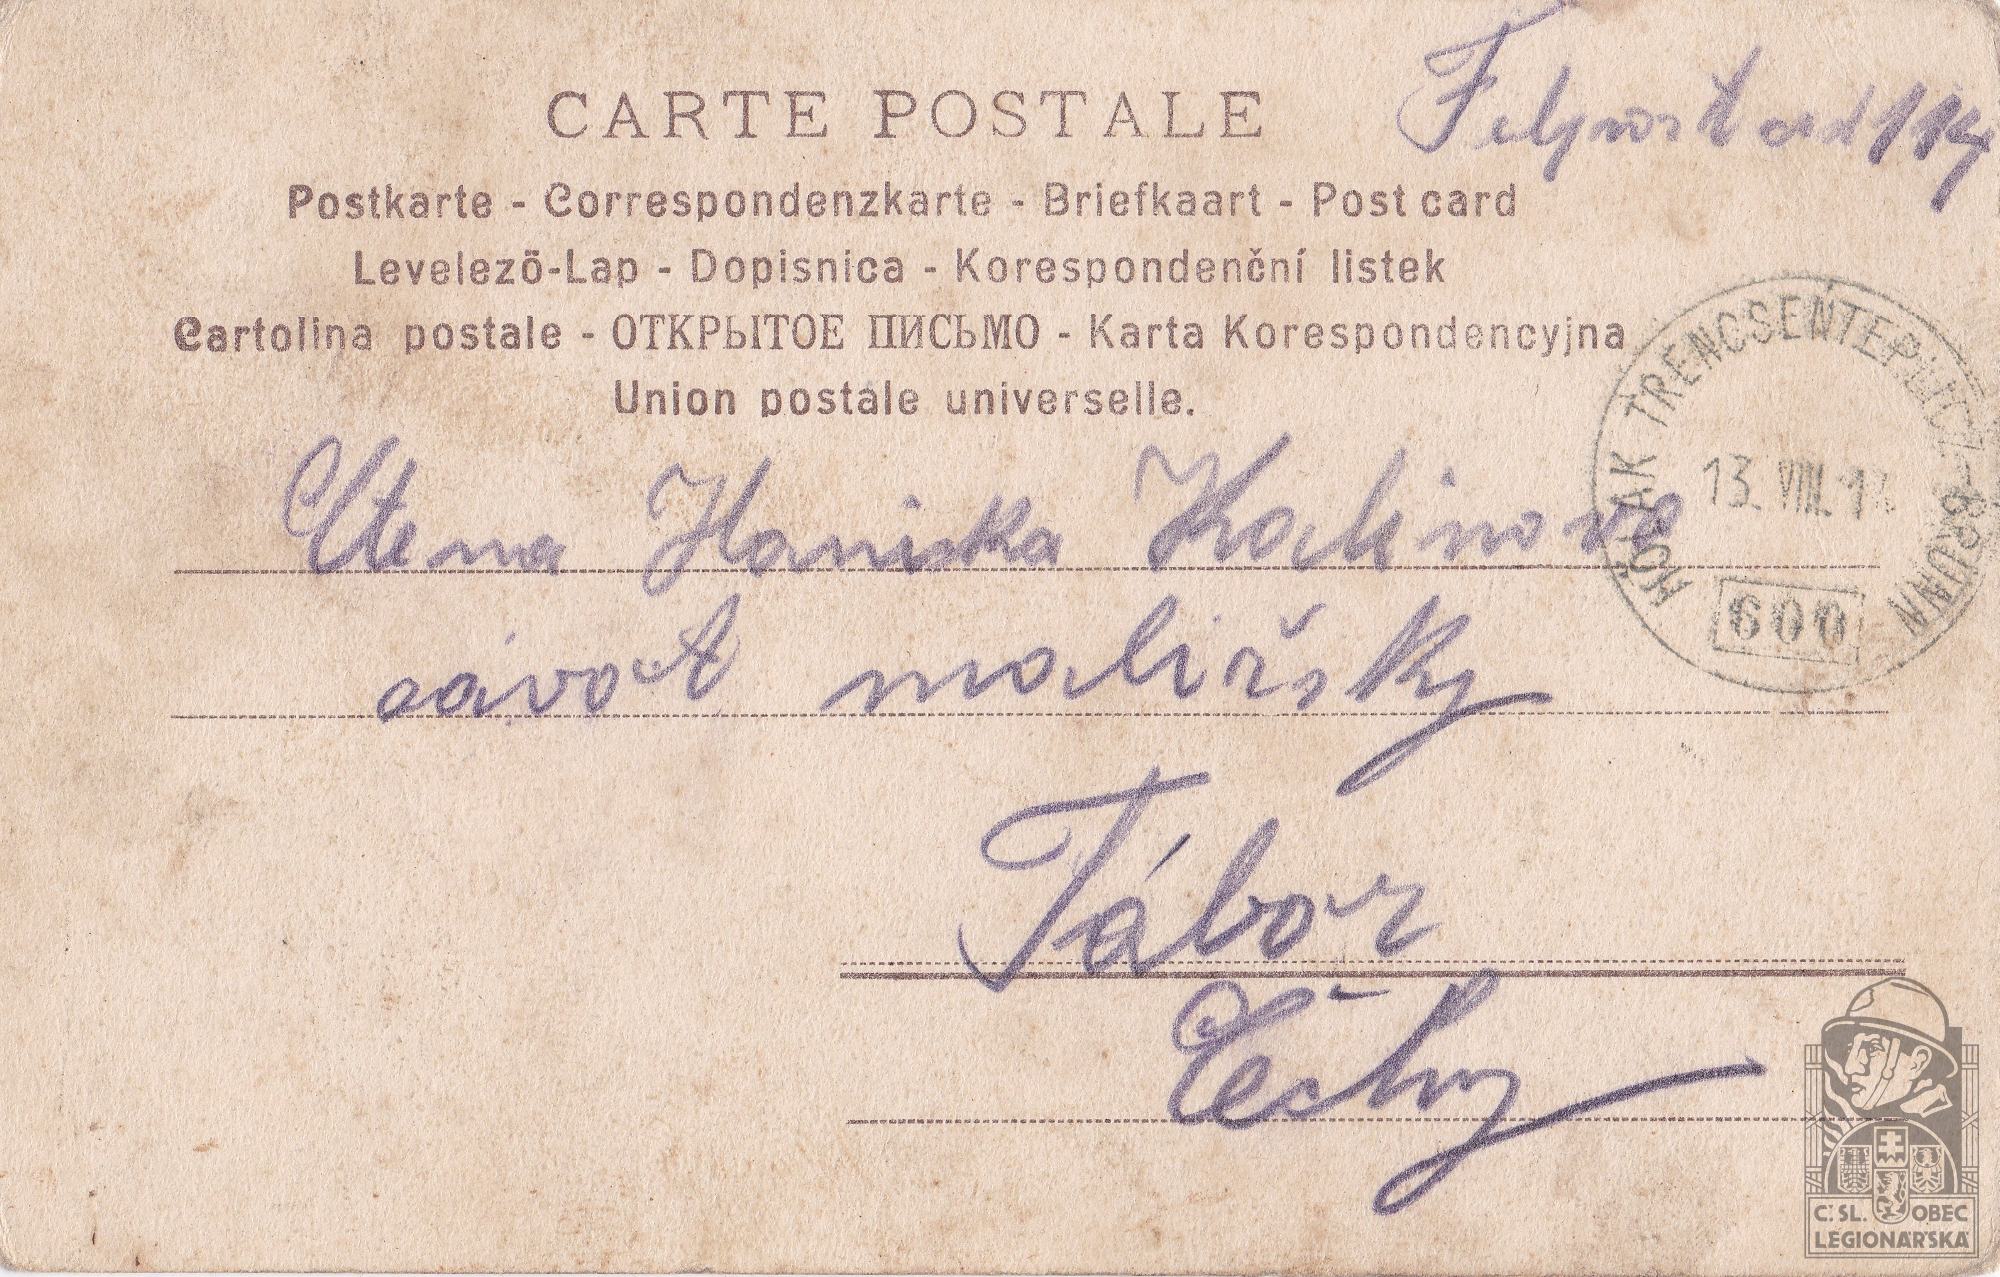 CARTE POSTALE
Postkarte - Correspondenzkarte - Briefkaart - Post card
Levelező-Lap - Dopisnica - Korespondenční listek
Cartolina postale - ОТКРЫТОЕ ПИСЬМО - Karta Korespondencyjna
Union postale universelle.
114
TRENCSÉNTEPLICZ-BRÜNN
13. VIII. 1
600
Ctena Kalinova
závod malířsky
Tábor
Čechy
Č. SL. OBEC
LEGIONÁŘSKÁ